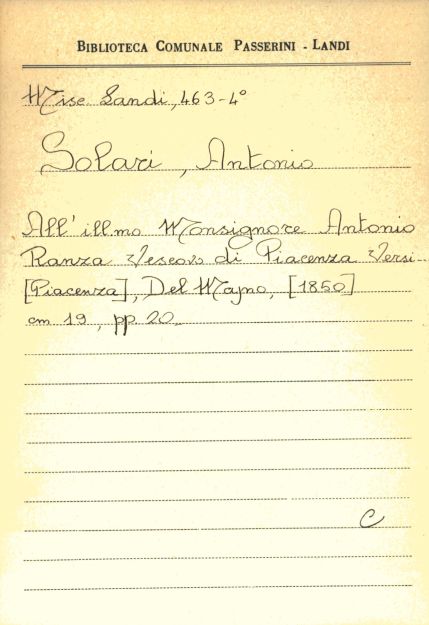 BIBLIOTECA COMUNALE PASSERINI - LANDI
Misc Landi, 463-4°
Solari, Antonio
All'illmo Monsignore Antonio
Ranza Vescovo di Piacenza Versi -
[Piacenza], Del Majno, [1850]
cm 19, pp 20.
C